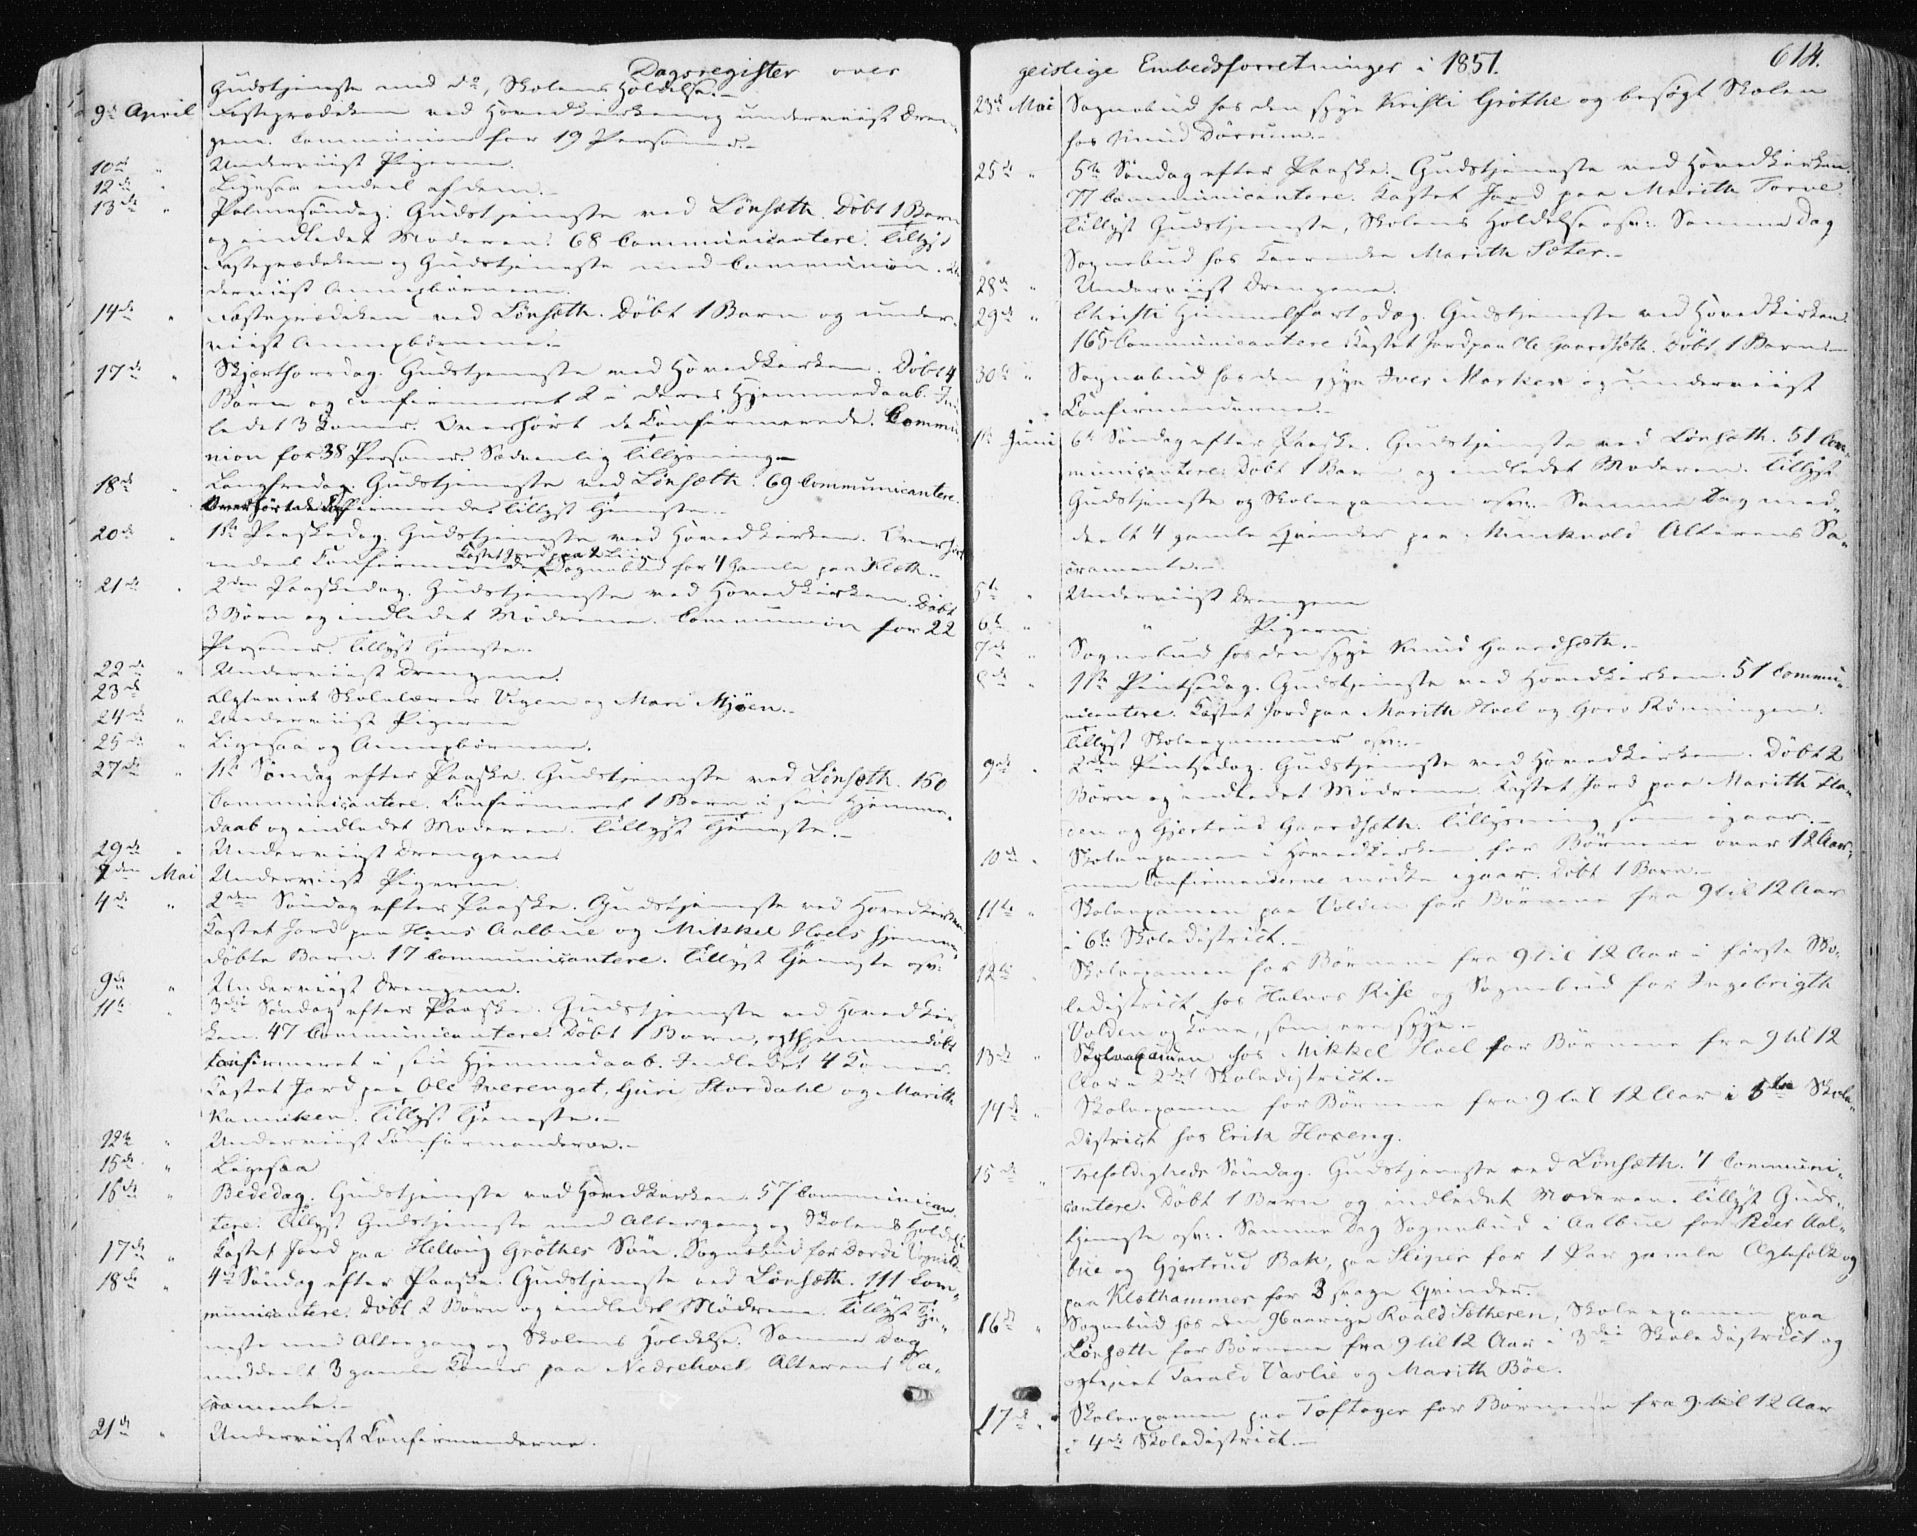 Dagsregister over
Gudstjeneste med do, Skolens Holdelse.-
9de April Fasteprædiken ved Hovedkirken og underviist Dren-
gene. Communion for 19 Personer.-
10de " Underviist Pigerne.
12te " Ligesaa endeel af dem.-
13de " Palmesöndag. Gudstjeneste ved Lönsæth. Döbt 1 Barn
og indledet Moderen. 68 Communicantere. Tillyst
Fasteprædiken og Gudstjeneste med Communion. Un-
derviist Annexbörnene.
14de " Fasteprædiken ved Lönsæth. Döbt 1 Barn og under-
viist Annexbörnene.-
17de " Skjærthorsdag. Gudstjeneste ved Hovedkirken. Döbt 4
Börn og confirmeret 2 i deres Hjemmedaab. Ind-
ledet 3 Koner. Overhört de Confirmerede. Commu-
nion for 38 Personer. Sædvanlig Tillysning.-
18de " Langfredag. Gudstjeneste ved Lönsæth. 69 Communicantere.
Overhört de Confirmerede. Tillyst Tjeneste.-
20de " 1ste Paaskedag. Gudstjeneste ved Hovedkirken. Overhört
Kastet Jord paa 2 Liig
endeel Confirmerede. Sognebud for 4 Gamle paa Klæth.-
21de " 2den Paaskedag. Gudstjeneste ved Hovedkirken. Döbt
3 Börn og indledet Mödrene. Communion for 22
Personer. Tillyst Tjeneste.-
22de " Underviist Drengene.
23de Ægteviet Skolelærer Vigen og Mari Mjöen.-
24de " Underviist Pigerne
25de " Ligesaa og Annexbörnene.
27de " 1ste Söndag efter Paaske. Gudstjeneste ved Lönsæth. 150
Communicantere. Confirmeret 1 Barn i sin Hjemme-
daab og indledet Moderen. Tillyst Tjeneste.-
29de " Underviist Drengene
2den Mai Underviist Pigerne.
4de " 2den Söndag efter Paaske. Gudstjeneste ved Hovedkirken
Kastet Jord paa Hans Aalbue og Mikkel Hoels hjemme-
döbte Barn. 17 Communicantere. Tillyst Tjeneste osv:
9de " Underviist Drengene.
11te " 3die Söndag efter Paaske. Gudstjeneste ved Hovedkir-
ken. 47 Communicantere. Döbt 1 Barn, og 1 hjemmedöbt
confirmeret i sin Hjemmedaab. Indledet 4 Koner.
Kastet Jord paa Ole Iverenget, Guri Stordahl og Marith
Kamiken. Tillyst Tjeneste.-
12te " Underviist Confirmanderne.-
15de " Ligesaa
16de " Bededag. Gudstjeneste ved Hovedkirken. 57 Communican-
tere. Tillyst Gudstjeneste med Altergang og Skolens Holdelse
17de " Kastet Jord paa Hellvig Gröthes Sön. Sognebud for Dordi
18de " 4de Söndag efter Paaske. Gudstjeneste ved Lönsæth. 111 Com-
municantere. Döbt 2 Börn og indledet Mödrene. Tillyst Tje-
neste med Altergang og Skolens Holdelse. Samme Dag
meddeelt 3 gamle Koner paa Nedrehoel Alterens Sa-
cramente.-
21de " Underviist Confirmanderne.
geistlige Embedsforretninger i 1851. 614.
23de Mai Sognebud hos den syge Kristi Gröthe og besögt Skolen
hos Knud Dörrum.-
25de " 5te Söndag efter Paaske. Gudstjeneste ved Hovedkirken.
77 Communicantere. Kastet Jord paa Marith Torve.
Tillyst Gudstjeneste, Skolens Holdelse osv:. Samme Dag
Sognebud hos Marith Sæter.-
28de " Underviist Drengene.
29de " Christi Himmelfartsdag. Gudstjeneste ved Hovedkirken.
165 Communicantere. Kastet Jord paa Ole Haardsæth. Döbt 1 Barn.-
30de " Sognebud hos den syge Iver Morken og underviist
Confirmanderne.-
1ste Juni 6te Söndag efter Paaske. Gudstjeneste ved Lönsæth. 51 Com-
municantere. Döbt 1 Barn og indledet Moderen. Tillyst
Gudstjeneste og Skoleexamen osv:. Samme Dag med-
deelt 4 gamle Qvinder paa Munkvold Alterens Sa-
cramente.-
5te " Underviist Drengene
6te " " Pigerne
7de " Sognebud hos den syge Knud Haardsæth.-
8de " 1ste Pintsedag. Gudstjeneste ved Hovedkirken. 51 Commu-
nicantere. Kastet Jord paa Marith Hoel og Goro Rönningen.
Tillyst Skoleexamener osv:.-
9de " 2den Pintsedag. Gudstjeneste ved Hovedkirken. Döbt 2
Börn og indledet Mödrene. Kastet Jord paa Marith Flo-
den og Gjertrud Gaardsæth. Tillysning som igaar.-
10de " Skoleexamen i Hovedkirken for Börnene over 12 Aar;
men Confirmanderne mödte igaar. Döbt 1 Barn.-
11te " Skoleexamen paa Volden for Börnene fra 9 til 12 Aar
i 6te Skoledistrict.-
12te " Skoleexamen for Börnene fra 9 til 12 Aar i förste Sko-
ledistrict hos Halvor Rise og Sognebud for Ingebrigth
Volden og Kone, som ere syge.-
13de " Skoleexamen hos Mikkel Hoel for Börnene fra 9 til 12
Aar i 2det Skoledistrict.-
14de " Skoleexamen for Börnene fra 9 til 12 Aar i 5te Skole-
district hos Erik Hoxeng.
15de " Trefoldigheds Söndag. Gudstjeneste ved Lönsæth. 4 Communi-
cantere. Döbt 1 Barn og indledet Moderen. Tillyst Guds-
tjeneste osv:. Samme Dag Sognebud i Aalbue for Peder Aal-
bue og Gjertrud Bak, paa Skiper for 1 Par gamle Ægtefolk og
paa Klæthammer for 3 svage Qvinder.
16de " Sognebud hos den 96 aarige Roald Sætheren, Skoleexamen paa
Lönsæth for Börnene fra 9 til 12 Aar i 3die Skoledistrict og
ægteviet Tarald Taslie og Marith Böe.
17de " Skoleexamen paa Toftager for Börnene fra 9 til 12 Aar
i 4de Skoledistrict.-